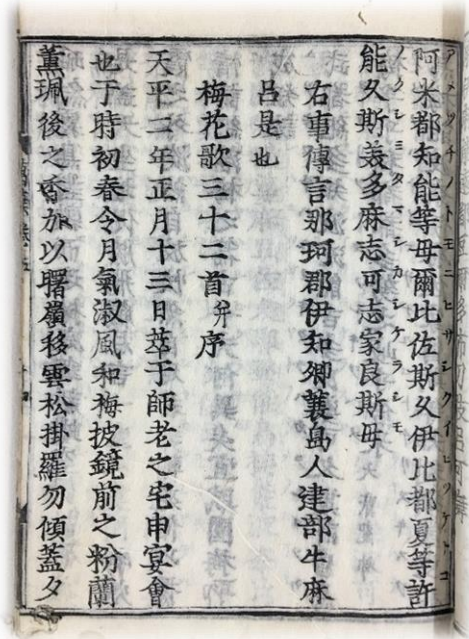 アメツチノトモニヒサシクイヒツケトコ
阿米都知能等母爾比佐斯久伊比都夏等許
ノクシミタマシカシケラシモ
能久斯美多麻志可志家良斯母
右事傳言那珂郡伊知郷蓑島人建部牛麻
呂是也
梅花歌三十二首并序
天平二年正月十三日萃于師老之宅申宴會
也于時初春令月氣淑風和梅披鏡前之粉蘭
薫珮後之香加以曙嶺移雲松掛羅勿傾蓋夕